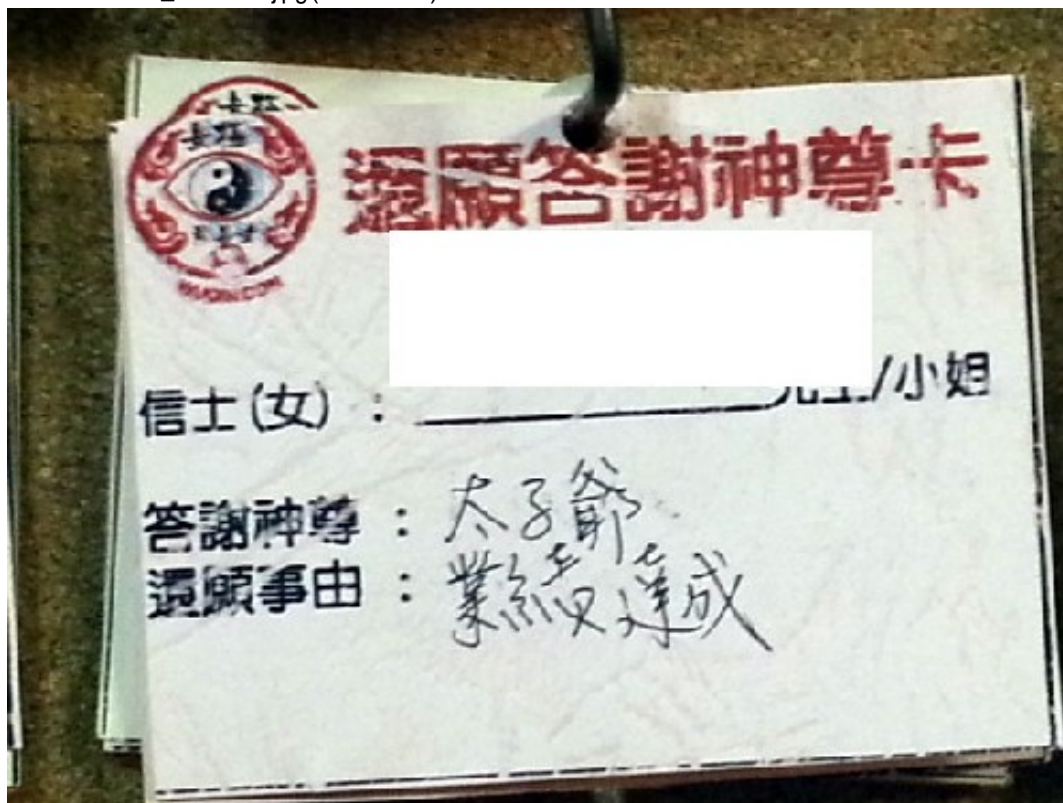 還願答謝神尊卡
信士(女)： /小姐
答謝神尊：太子爺
還願事由：業績達成